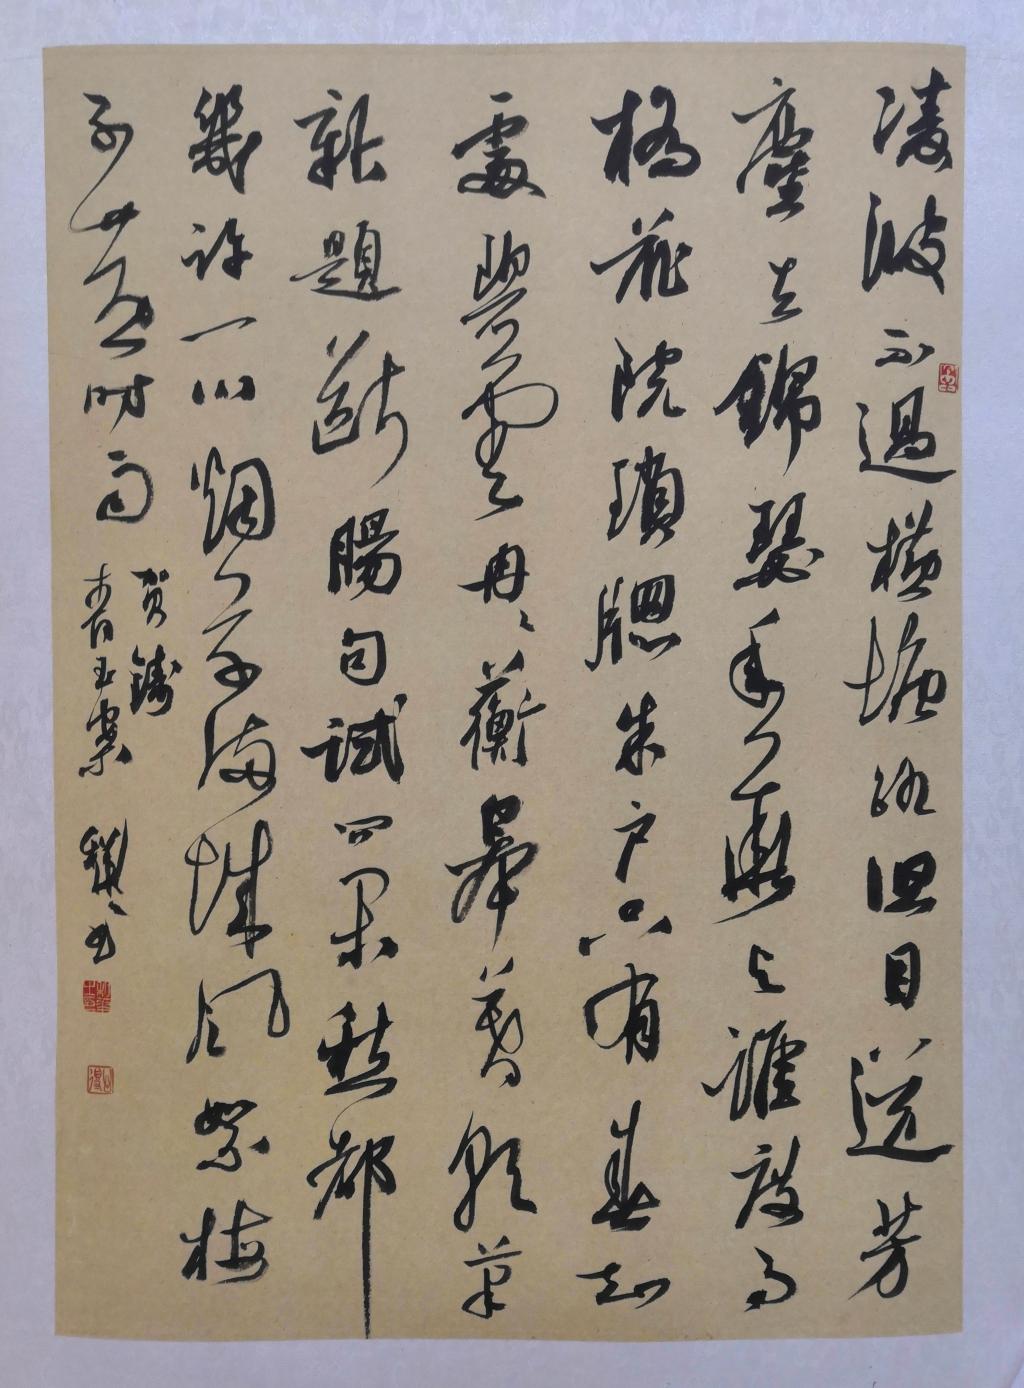 凌波不過橫塘路但目送芳
塵去錦瑟年華与誰度月
橋花院瑣牕朱户只有春知
處碧雲冉冉蘅皋暮彩筆
新題斷腸句試問閑愁都
幾許一川烟草滿城風絮梅
子黃時雨
贺鑄
青玉案 书